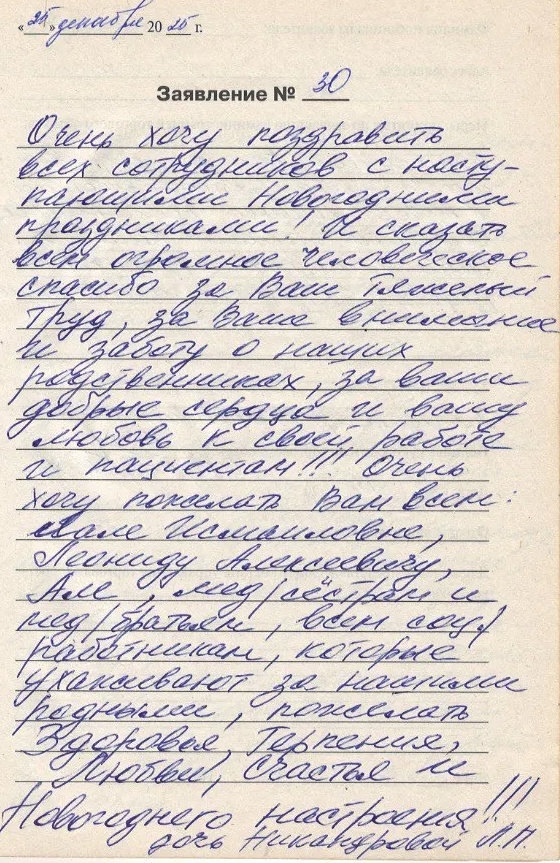 «25» декабря 2025 г.
Заявление № 30
Очень хочу поздравить
всех сотрудников с насту-
пающими Новогодними
праздниками! И сказать
всем огромное человеческое
спасибо за Ваш тяжелый
труд, за Ваше внимание
и заботу о наших
родственниках, за ваши
добрые сердца и вашу
любовь к своей работе
и пациентам!!! Очень
хочу пожелать Вам всем:
Исмаиловне,
Леониду Алексеевичу,
Але, мед/сёстрам и
мед/братьям, всем соц/
работникам, которые
ухаживают за нашими
родными, пожелать
Здоровья, Терпения,
Любви, Счастья и
Новогоднего настроения!!!
дочь Никандровой Л.П.